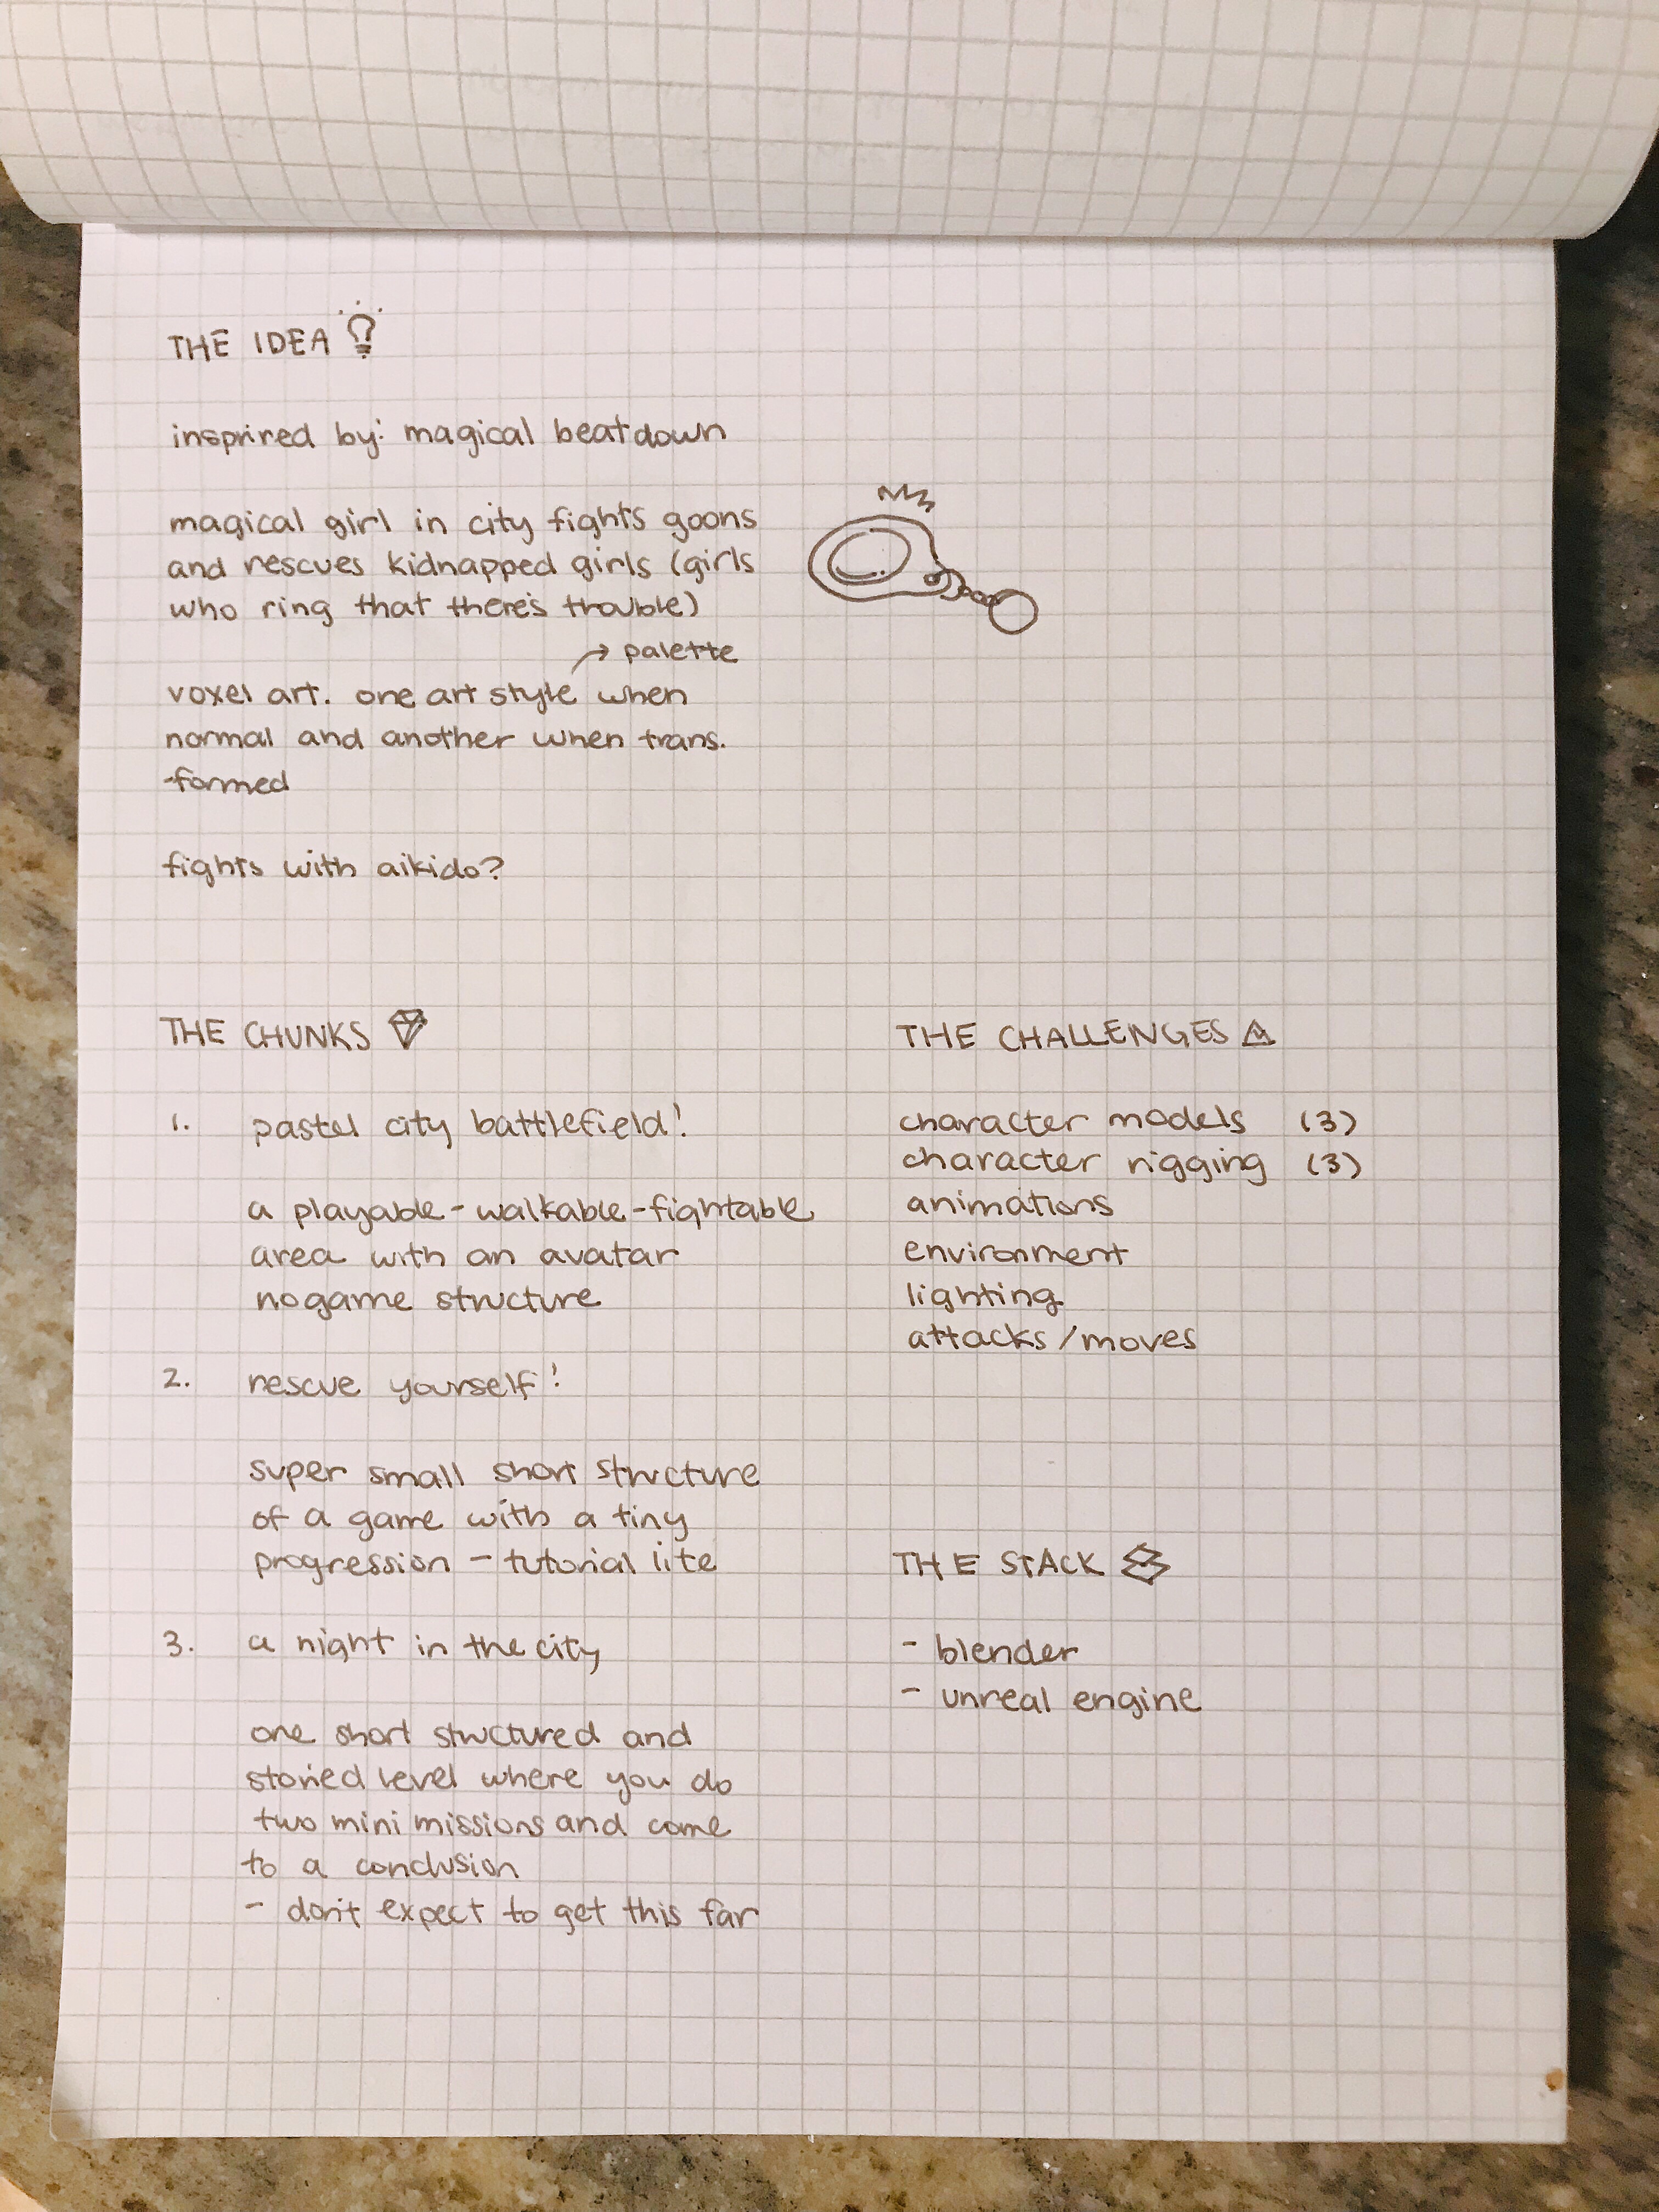 THE IDEA
insprired by: magical beatdown
magical girl in city fights goons
and rescues kidnapped girls (girls
who ring that there's trouble)
→ palette
voxel art. one art style when
normal and another when trans.
-formed
fights with aikido?
THE CHUNKS
1. pastel city battlefield!
a playable-walkable-fightable
area with an avatar
no game structure
2. rescue yourself!
super small short structure
of a game with a tiny
progression - tutorial lite
3. a night in the city
one short structured and
storied level where you do
two mini missions and come
to a conclusion
- don't expect to get this far
THE CHALLENGES
character models (3)
character rigging (3)
animations
environment
lighting
attacks/moves
THE STACK
- blender
- unreal engine